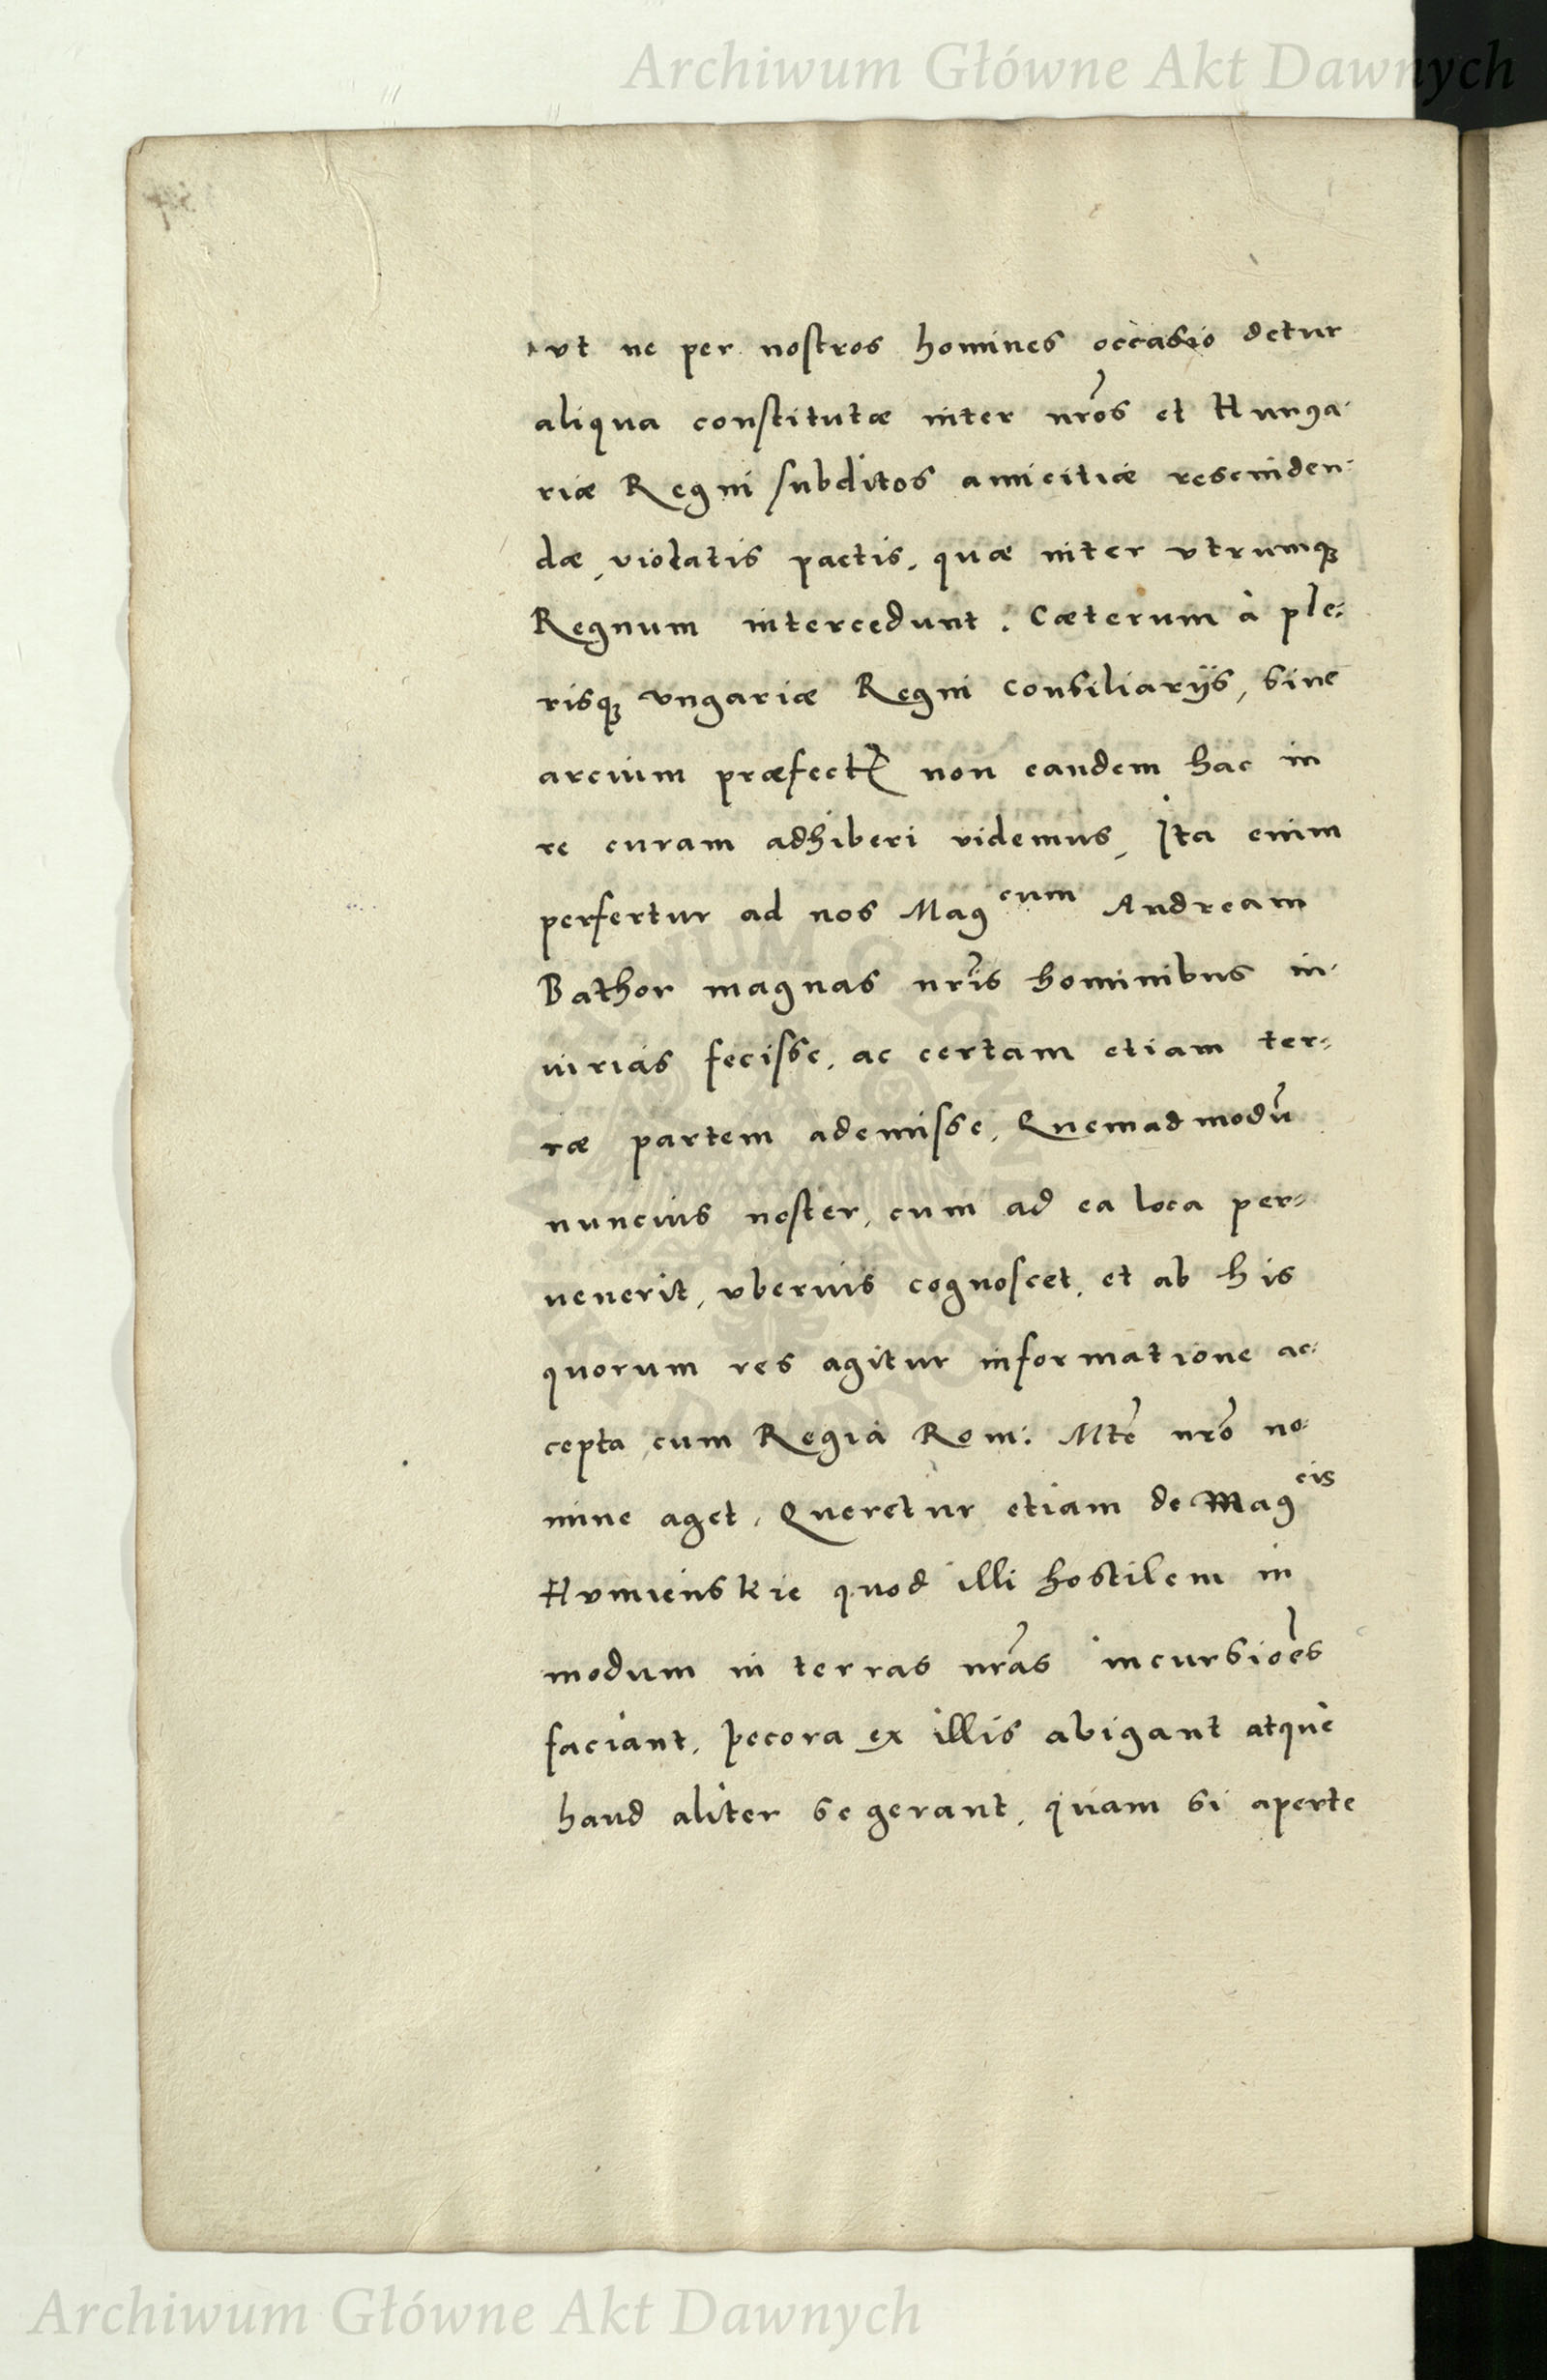 Archiwum Główne Akt Dawnych
vt ne per nostros homines occasio detur
aliqua constitutæ inter nr̃os et Hunga-
riæ Regni subditos amicitiæ rescinden-
dæ, violatis pactis, quæ inter vtrumq₃
Regnum intercedunt. Cæterum à ple-
risq₃ vngariæ Regni Consiliarijs, sine
arcium præfect~ non eandem hac in
re curam adhiberi videmus, Ita enim
perfertur ad nos Mag^cum Andream
Bathor magnas nr̃is hominibus in-
iurias fecisse, ac certam etiam ter-
ræ partem ademisse, Quemadmodũ
nuncius noster, cum ad ea loca per-
venerit, vberius cognoscet, et ab his
quorum res agitur informatione ac-
cepta, cum Regia Rom: Mte nr̃o no-
mine aget, Queretur etiam de Mag^cis
Humienskie quod illi hostilem in
modum in terras nr̃as incursiões
faciant, pecora ex illis abigant atque
haud aliter se gerant, quam si aperte
Archiwum Główne Akt Dawnych